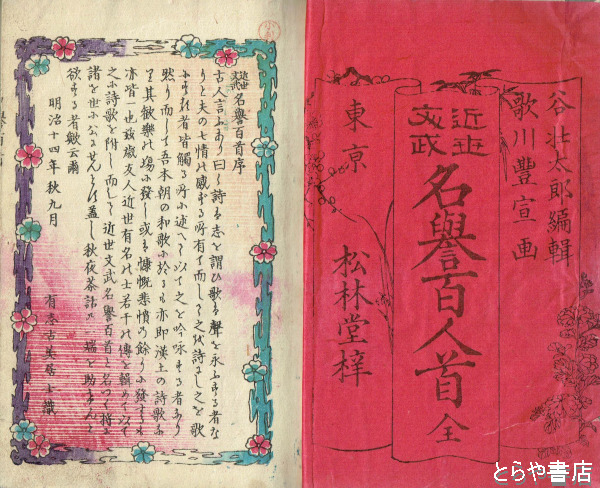 谷壮太郎編輯
歌川豊宣画
近世
文武
名誉百人首 全
東京
松林堂梓
近世文武名誉百首序
古人言ふあり曰く詩ハ志を謂ひ歌ハ聲を永ふする者な
りと夫の七情の感ずる所有て而して之代詩よし之を歌
ふ其れ者皆觸る所ふ述べて以て之を吟咏する者あり
然り而して吾本朝の和歌に於るも亦即漢土の詩歌ふ
其歡樂の場ふ發し或ハ慷慨悲憤の餘りふ發するも
亦皆一也友人近世有名の士若干の傳を輯めて以て
之ふ詩歌を附し而して近世文武名誉百首と名つけ將に
諸を世ふ公せんとす蓋し秋夜茶話の端を助けんと
欲する者歟云爾
明治十四年秋九月
居士識
とらや書店